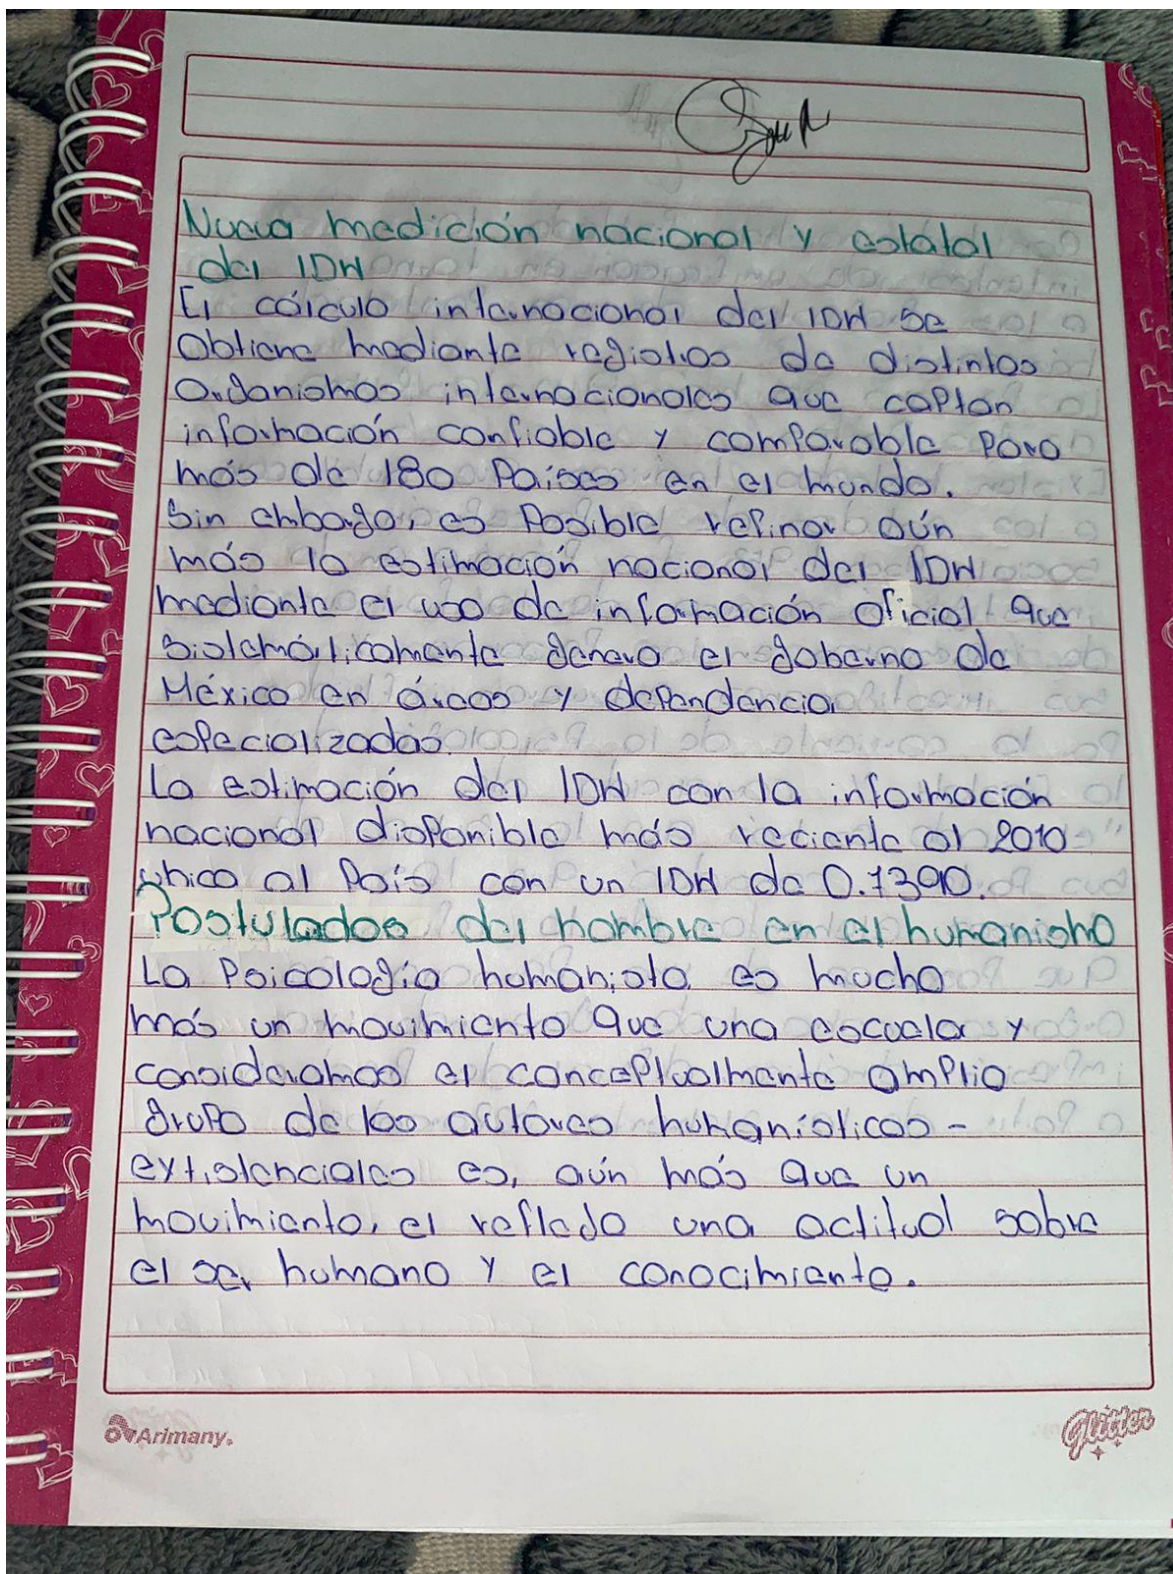 Nueva medición nacional y estatal
del IDH
El cálculo internacional del IDH se
Obtiene mediante registros de distintos
Organismos internacionales que captan
información confiable y comparable para
más de 180 Países en el mundo.
Sin embargo, es Posible refinar aún
más la estimación nacional del IDH
mediante el uso de información Oficial que
Sistemáticamente genera el gobierno de
México en áreas y dependencia
especializadas.
La estimación del IDH con la información
nacional disponible más reciente al 2010
ubica al País con un IDH de 0.7390.
Postulados del hombre en el humanismo
La Psicología humanista es mucho
más un movimiento que una escuela y
consideramos el conceptualmente amplio
grupo de los autores humanísticos-
existenciales es, aún más que un
movimiento, el reflejo una actitud sobre
el ser humano y el conocimiento.
Arimany.
Glitter